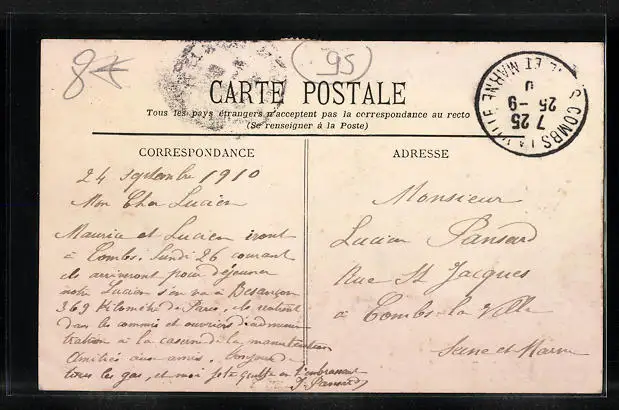 8f
95
CARTE POSTALE
Tous les pays étrangers n'acceptent pas la correspondance au recto
(Se renseigner à la Poste)
COMBS LA VILLE SEINE ET MARNE
7 25
25 - 9
CORRESPONDANCE
ADRESSE
24 septembre 1910
Mon Cher Lucien
Maurice et Lucien iront
à Combs. Lundi 26 courant
ils arriveront pour déjeuner
notre Lucien s'en va à Besançon
369 Kilomètres de Paris, ils
dans les commis et ouvriers d'adminis
tration à la caserne de la manutention
Amitiés aux amis. Bonjour de
tous les gas, et moi en t'embrassant
J. Pansard
Monsieur
Lucien Pansard
Rue St Jacques
à Combs-la-Ville
Seine et Marne